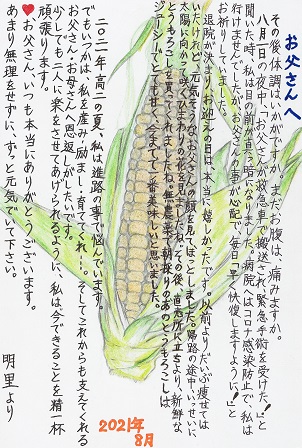 お父さんへ
その後体調はいかがですか。まだお腹は、痛みますか。
八月一日の夜中に「お父さんが救急車で搬送され、緊急手術を受けた!」と
聞いた時、私は目の前が真っ暗になりました。病院へはコロナ感染防止で、私は
行けませんでしたが、お父さんの事が心配で、毎日「早く快復しますように!」と
お祈りしていました。
退院が決まり、お迎えの日は、本当に嬉しかったです。以前よりだいぶ痩せては
いたけれど、元気そうなお父さんの顔を見てほっとしました。帰路の途中、いっせいに
太陽に向かって咲く、ひまわりの花を見ましたね。その後、直売所に立ちより、新鮮な
とうもろこしを買ってくれました。無農薬で朝採りのあのとうもろこしは
ジューシーでとても甘く、今までで一番美味しいと思いました。
二〇二一年、高二の夏、私は進路の事で悩んでいます。
でもいつかは、私を産み・励まし・育ててくれ…、そしてこれからも支えてくれる
お父さん・お母さんへ恩返しがしたいです。
少しでも二人に楽をさせてあげられるように、私は今できることを精一杯
頑張ります。
♥お父さん、いつも本当にありがとうございます。
あまり無理をせずに、ずっと元気でいて下さい。
明里より
2021年
8月